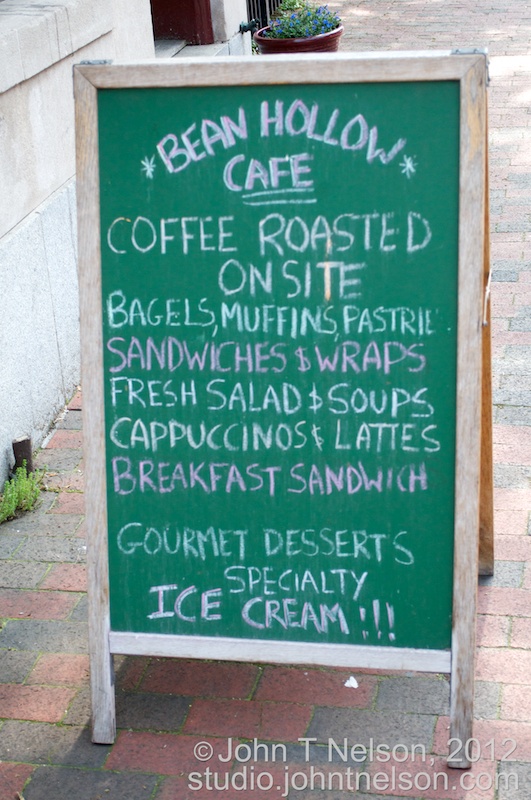 BEAN HOLLOW
CAFE
COFFEE ROASTED
ON SITE
BAGELS, MUFFINS, PASTRIE
SANDWICHES & WRAPS
FRESH SALAD & SOUPS
CAPPUCCINOS & LATTES
BREAKFAST SANDWICH
GOURMET DESSERTS
SPECIALTY
ICE CREAM!!!
© John T Nelson, 2012
studio.johntnelson.com